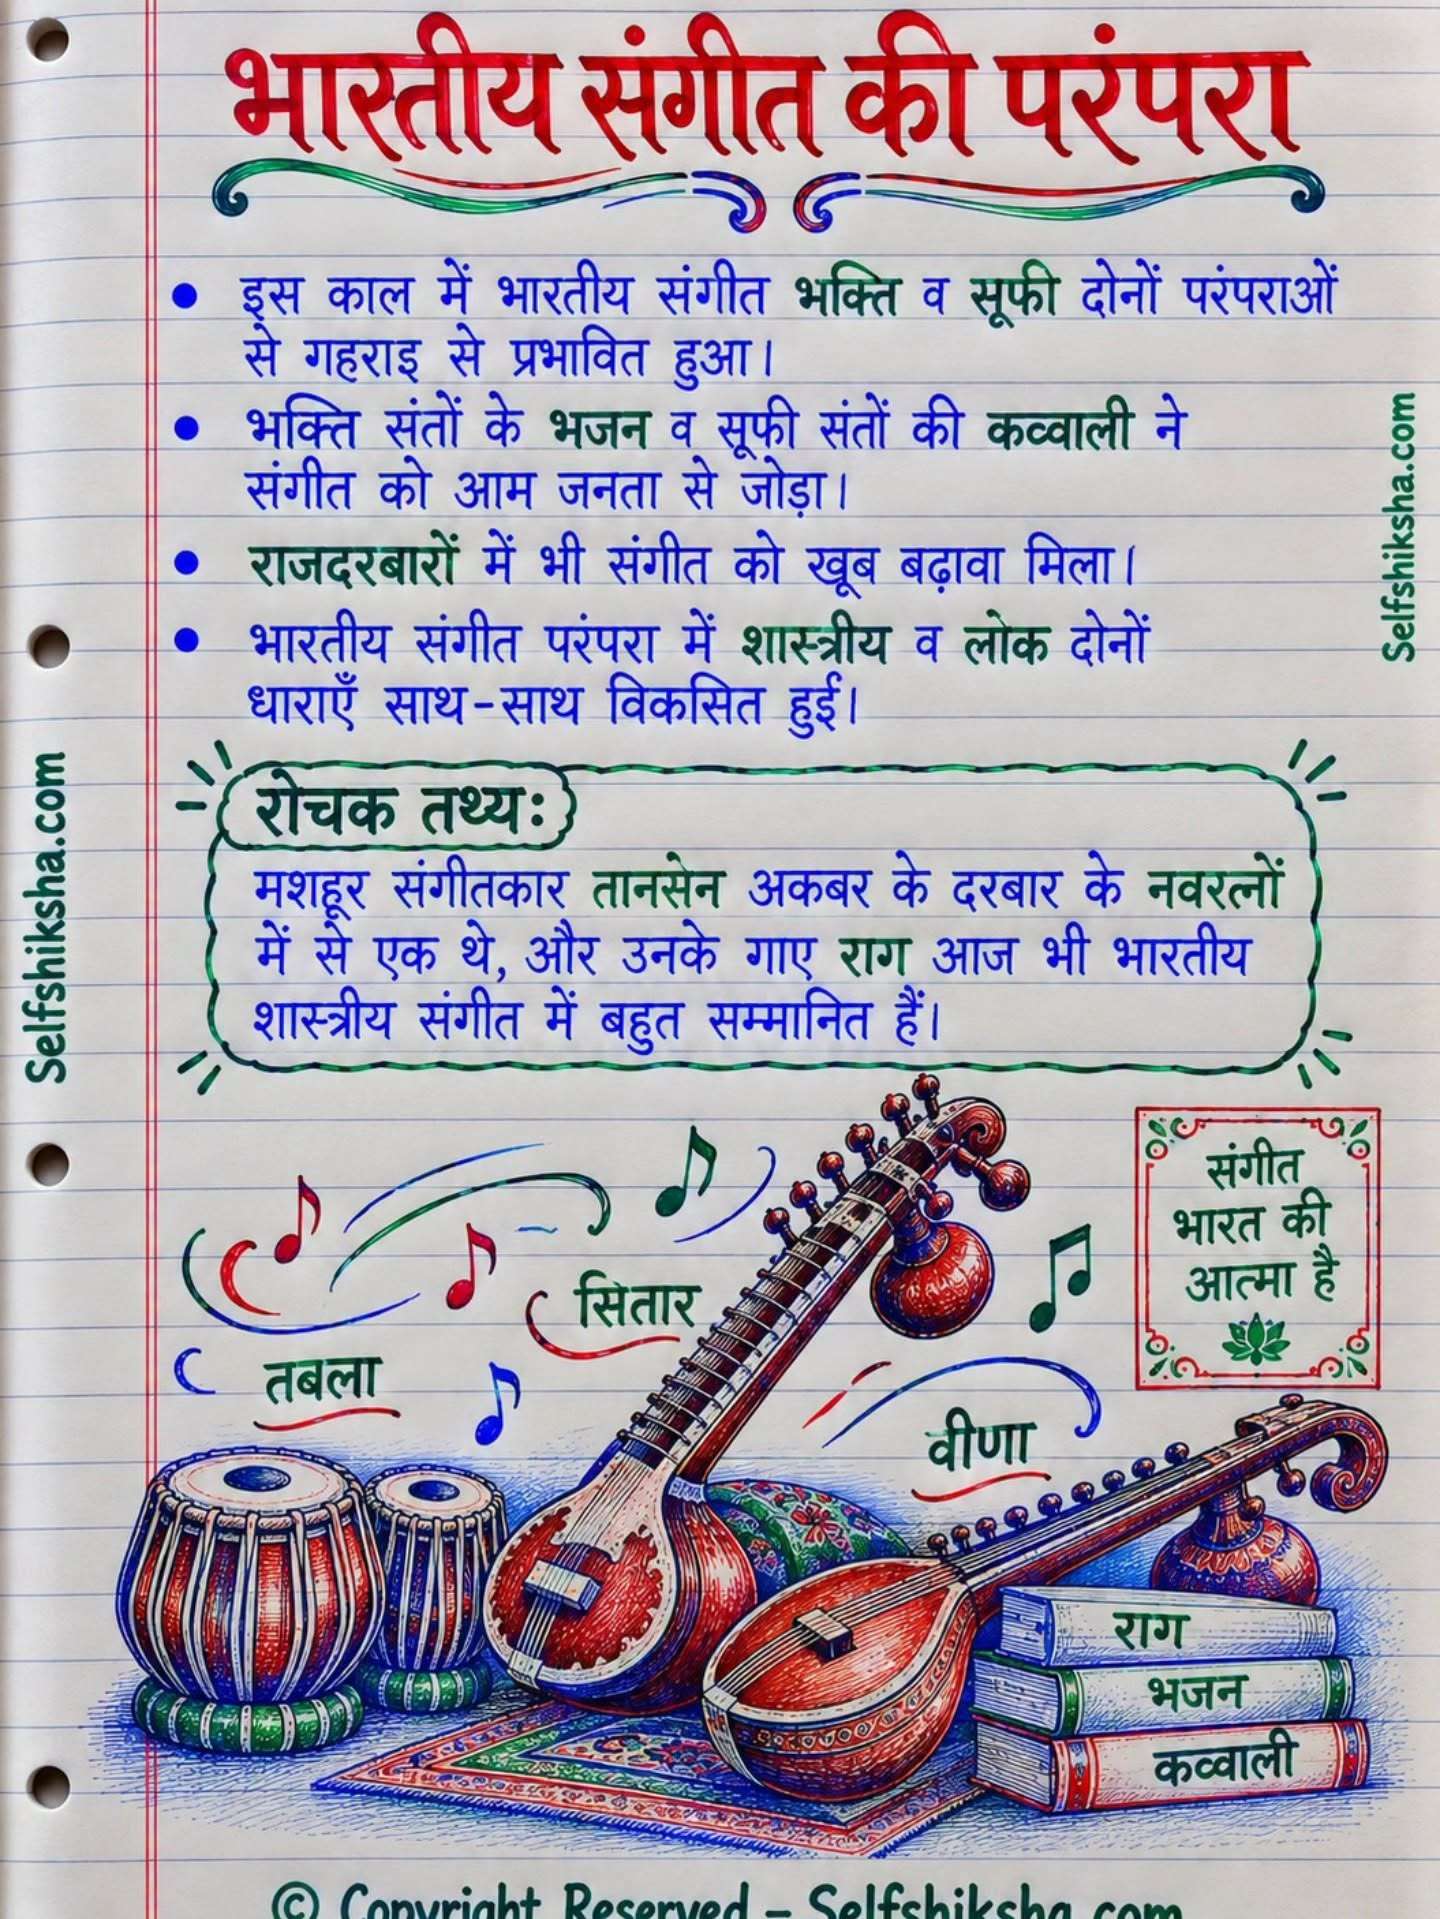 भारतीय संगीत की परंपरा
• इस काल में भारतीय संगीत भक्ति व सूफी दोनों परंपराओं
से गहराइ से प्रभावित हुआ।
• भक्ति संतों के भजन व सूफी संतों की कव्वाली ने
संगीत को आम जनता से जोड़ा।
• राजदरबारों में भी संगीत को खूब बढ़ावा मिला।
• भारतीय संगीत परंपरा में शास्त्रीय व लोक दोनों
धाराएँ साथ-साथ विकसित हुई।
रोचक तथ्य:
मशहूर संगीतकार तानसेन अकबर के दरबार के नवरत्नों
में से एक थे, और उनके गाए राग आज भी भारतीय
शास्त्रीय संगीत में बहुत सम्मानित हैं।
संगीत
भारत की
आत्मा है
सितार
तबला
वीणा
राग
भजन
कव्वाली
Selfshiksha.com
Selfshiksha.com
© Copyright Reserved - Selfshiksha.com